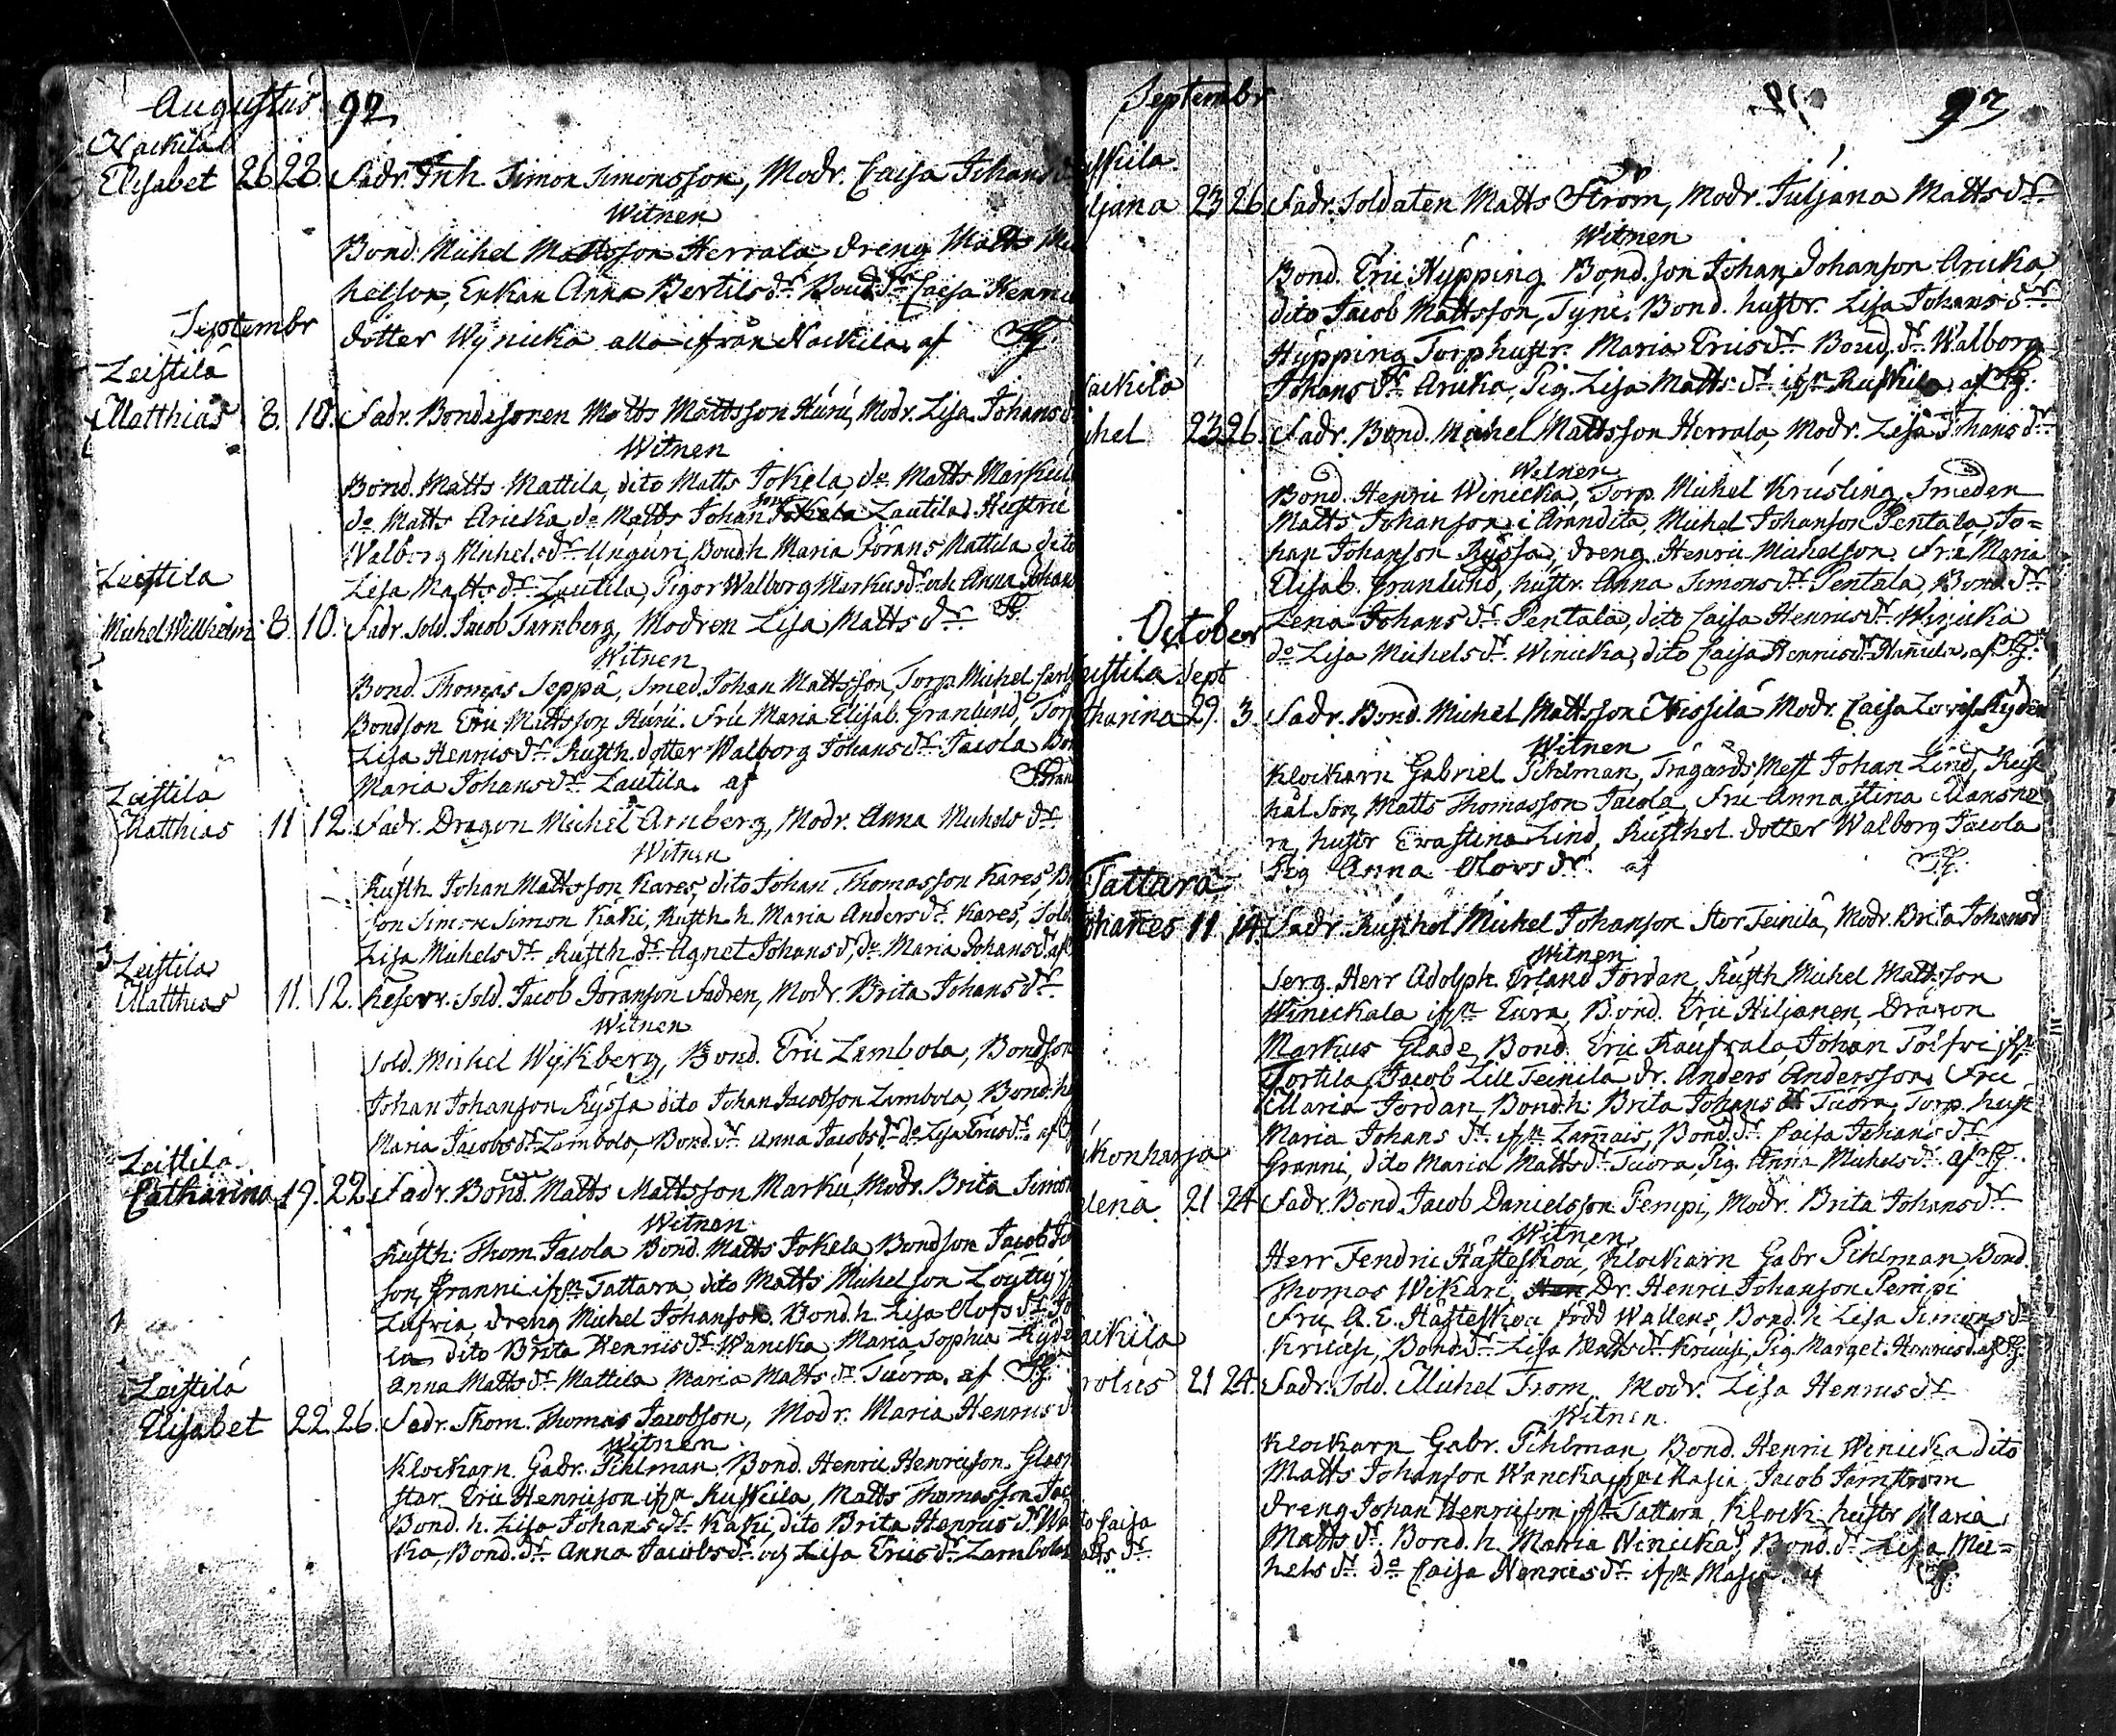 Augustus 92
Nackila
Elisabet 26 28. Fadr. Inh. Simon Simonsson, Modr. Caisa Johans
Witnen
Bond. Michel Mattsson Herrala, dreng Matts Mi
helson, Enkan Anna Bertils dr. Bond. dr. Caisa Henrics
dotter Wynicka alla ifrån Nackila. af
Septembr
Leistilä
Matthias 8. 10. Fadr. Bondesonen Matts Mattsson Huru, Modr. Lisa Johans d
Witnen
Bond. Matts Mattila, dito Matts Jokela, do Matts Markul
do Matts Aricka, do Matts Johanson Lautila, Hustru
Walborg Michelsdr. Unguri, Bondh. Maria Jörans Mattila dito
Lisa Matts dr. Lautila, Pigor Walborg Markus dr. och Anna Johans
Leistila
Michel Wilhelm 8. 10. Fadr. Sold. Jacob Järnberg, Modren Lisa Matts dr.
Witnen
Bond. Thomas Seppä, Smed. Johan Mattsson, Torp. Michel Carls
Bondson Eric Mattsson Huru. Fru Maria Elisab. Granlund, Torp
Lisa Henrics dr. Rusth. dotter Walborg Johans dr. Jacola Bon
Maria Johans dr. Lautila. af
Leistilä
Matthias 11 12. Fadr. Dragon Michel Arnberg, Modr. Anna Michels dr.
Witnen
Rusth. Johan Mattsson Kares, dito Johan Thomasson Kares, B
son Simon Simon Käki, Rusth. h. Maria Anders dr. Kares, Sold.
Lisa Michels dr. Rusth. dr. Agnet Johans d, do Maria Johans d. af
Leistila
Matthias 11. 12. Reserv. Sold. Jacob Jöranson Fadren, Modr. Brita Johans dr.
Witnen
Sold. Michel Wykberg, Bond. Eric Lambola, Bondson
Johan Johanson Ryssa dito Johan Jacobson Lambola, Bond. h
Maria Jacobs dr. Lambola, Bond. dr. Anna Jacobs dr. do Lisa Erics dr. af
Leistilä
Catharina 19. 22. Fadr. Bond. Matts Mattsson Marku, Modr. Brita Simon
Witnen
Rusth. Thom. Jacola Bond. Matts Jokela, Bondson Jacob Jo
son, Granni ifrn Tattara, dito Matts Michelson Löytty
Lufria, dreng Michel Johanson. Bond. h. Lisa Olofs dr. Jo
la dito Brita Henrics dr. Wancka Maria Sophia Ryde
Anna Matts dr. Mattila Maria Matts dr. Tuora. af
Leistilä
Elisabet 22. 26. Fadr. Skom. Thomas Jacobson, Modr. Maria Henrics d
Witnen
Klockarn Gabr. Pihlman. Bond. Henric Henricson. Glas
star Eric Henricson ifrn Ruskila, Matts Thomasson Jac
Bond. h. Lisa Johans dr. Käki, dito Brita Henrics d. Wa
ka, Bond. dr. Anna Jacobs dr. och Lisa Erics dr. Lambola
Septembr 93
uskila
uljana 23 26. Fadr. Soldaten Matts Ström, Modr. Juljana Matts dr.
Witnen
Bond. Eric Hypping Bond. son Johan Johanson Aricka,
dito Jacob Mattsson, Tyni. Bond. hustr. Lisa Johans dr.
Hypping Torphustr. Maria Erics dr. Bond. dr. Walborg
Johans dr. Aricka, Pig. Lisa Matts dr. ifrn Ruskila. af
ackila
chel 23 26. Fadr. Bond. Michel Mattsson Herrala, Modr. Lisa Johans dr.
Witnen
Bond. Henric Winicka, Torp. Michel Krusling, Smeden
Matts Johanson i Arandila, Michel Johanson Pentala, Jo=
han Johanson Ryssa, dreng Henric Michelson. Fru Maria
Elisab. Granlund, hustr. Anna Simons dr. Pentala, Bond. dr.
Lena Johans dr. Pentala, dito Caisa Henrics dr. Winicka
do Lisa Michels dr. Winicka, dito Caisa Henrics dr. af
October
eistila Sept
tharina 29. 3. Fadr. Bond. Michel Mattsson Kissila Modr. Caisa Lovis. Ryden
Witnen
Klockarn Gabriel Pihlman, Trägårds Mest. Johan Lind, Rust
hål. Son, Matts Thomasson Jacola, Fru Anna Stina Mansne
ra, hustr Ewa Stina Lind, Rusthol. dotter Walborg Jacola
Pig Anna Olovs dr. af
Tattara
ohañes 11 14. Fadr. Rusthol Michel Johanson Stor Teinila, Modr. Brita Johans d
Witnen
Serg. Herr Adolph. Erland Jordan, Rusth. Michel Mattsson
Winickala ifrn Eura, Bond. Eric Hiljanen, Dragon
Markus Glade, Bond. Eric Kaufvala, Johan Toifri ifrn
Tortila, Jacob Lill Teinila dr. Anders Andersson. Fru
Maria Jordan, Bond. h. Brita Johans dr. Tuora, Torp. hust
Maria Johans dr. ifrn Lammais, Bond. dr. Caisa Johans dr.
Granni, dito Maria Matts dr. Tuora, Pig. Anna Michels dr. af
ukonharja
elena 21 24 Fadr. Bond Jacob Danielsson Pempi, Modr. Brita Johans dr.
Witnen
Herr Fendric Hästeskou, Klockarn Gabr Pihlman, Bond.
Thomas Wikari, Dr. Henric Johanson Pempi
Fru A. E. Hästeskou född Wallens, Bond. h. Lisa Simons dr
Kriusi, Bond. dr. Lisa Matts dr. Kriusi, Pig. Marget. Henrics d. af
ackila
rolus 21 24. Fadr. Sold. Michel From. Modr. Lisa Henrics dr.
Witnen
Klockarn Gabr. Pihlman, Bond. Henric Winicka dito
Matts Johanson Wancka Jacob Järnström
dreng Johan Henricson ifrn Tattara, Klock. hustr Maria
Matts dr. Bond. h. Maria Winicka, Bond. dr. Lisa Mic=
hels dr. do Caisa Henrics dr. ifrn Masia af
to Caisa
atts dr.